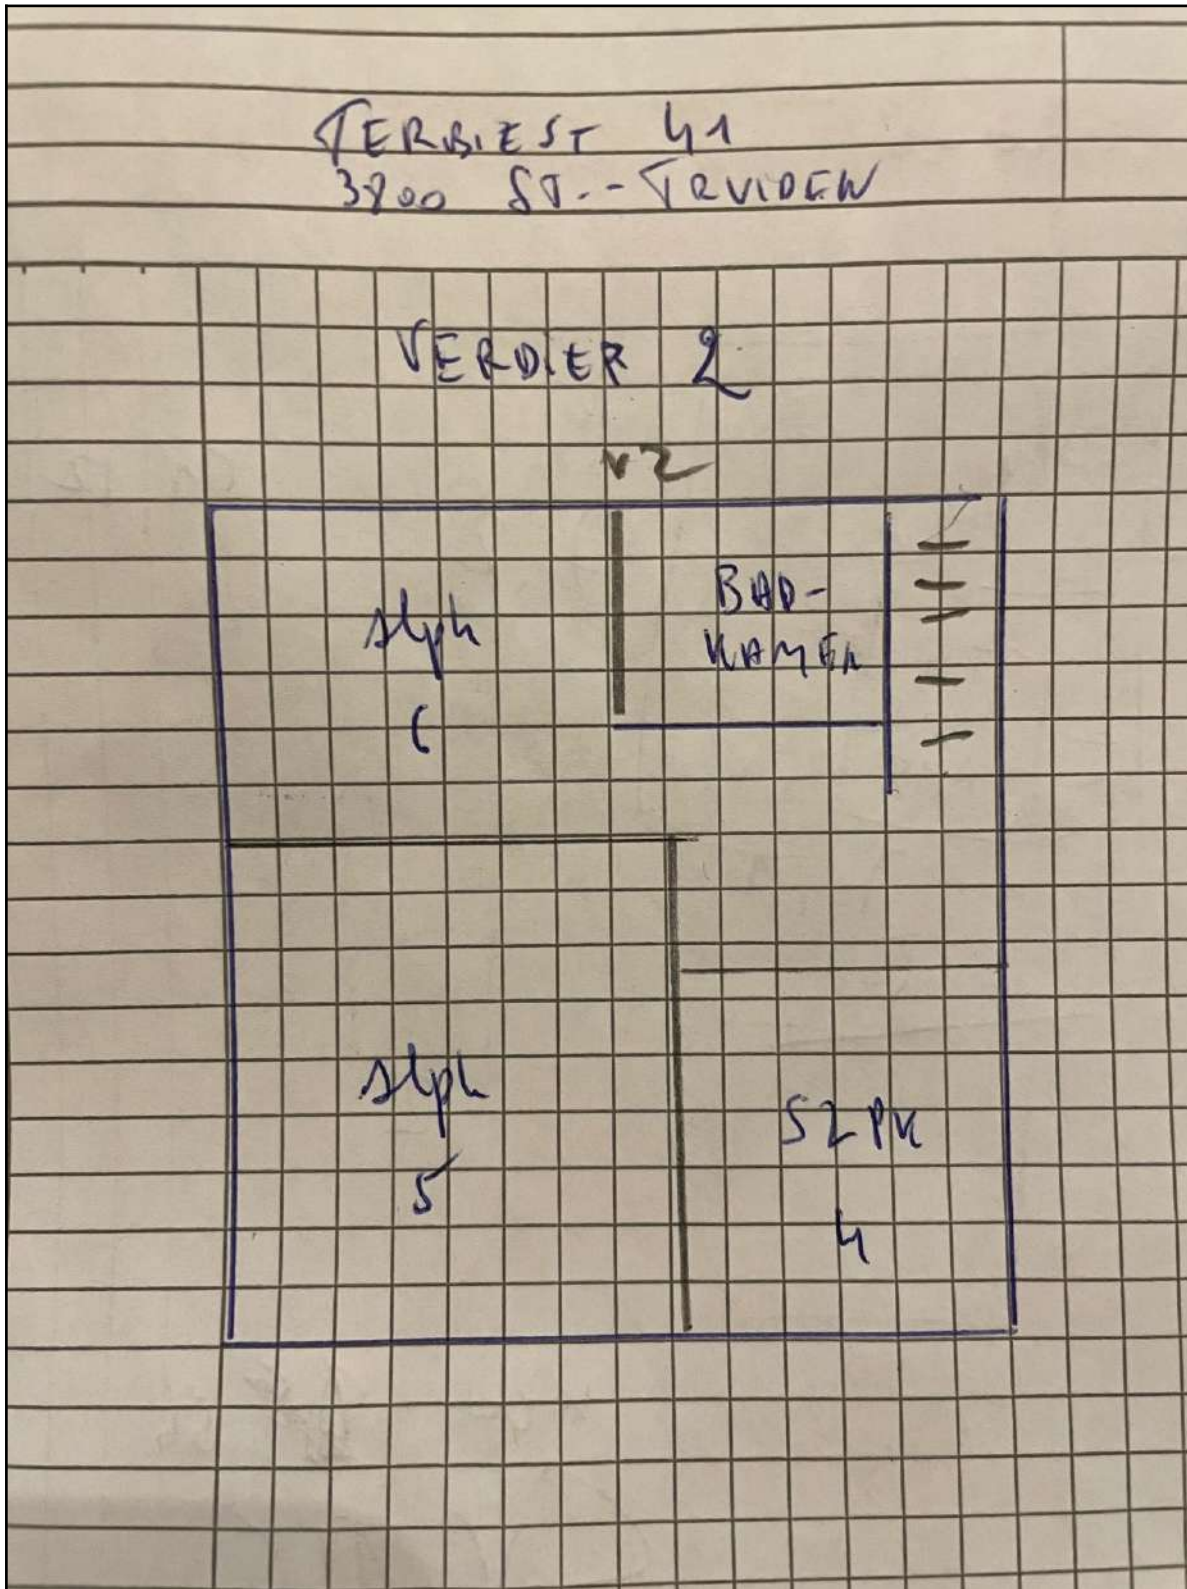 TERBIEST 41
3800 ST.-TRUIDEN
VERDIER 2
v2
BAD-
KAMER
slpk
6
slpk
5
SLPK
4